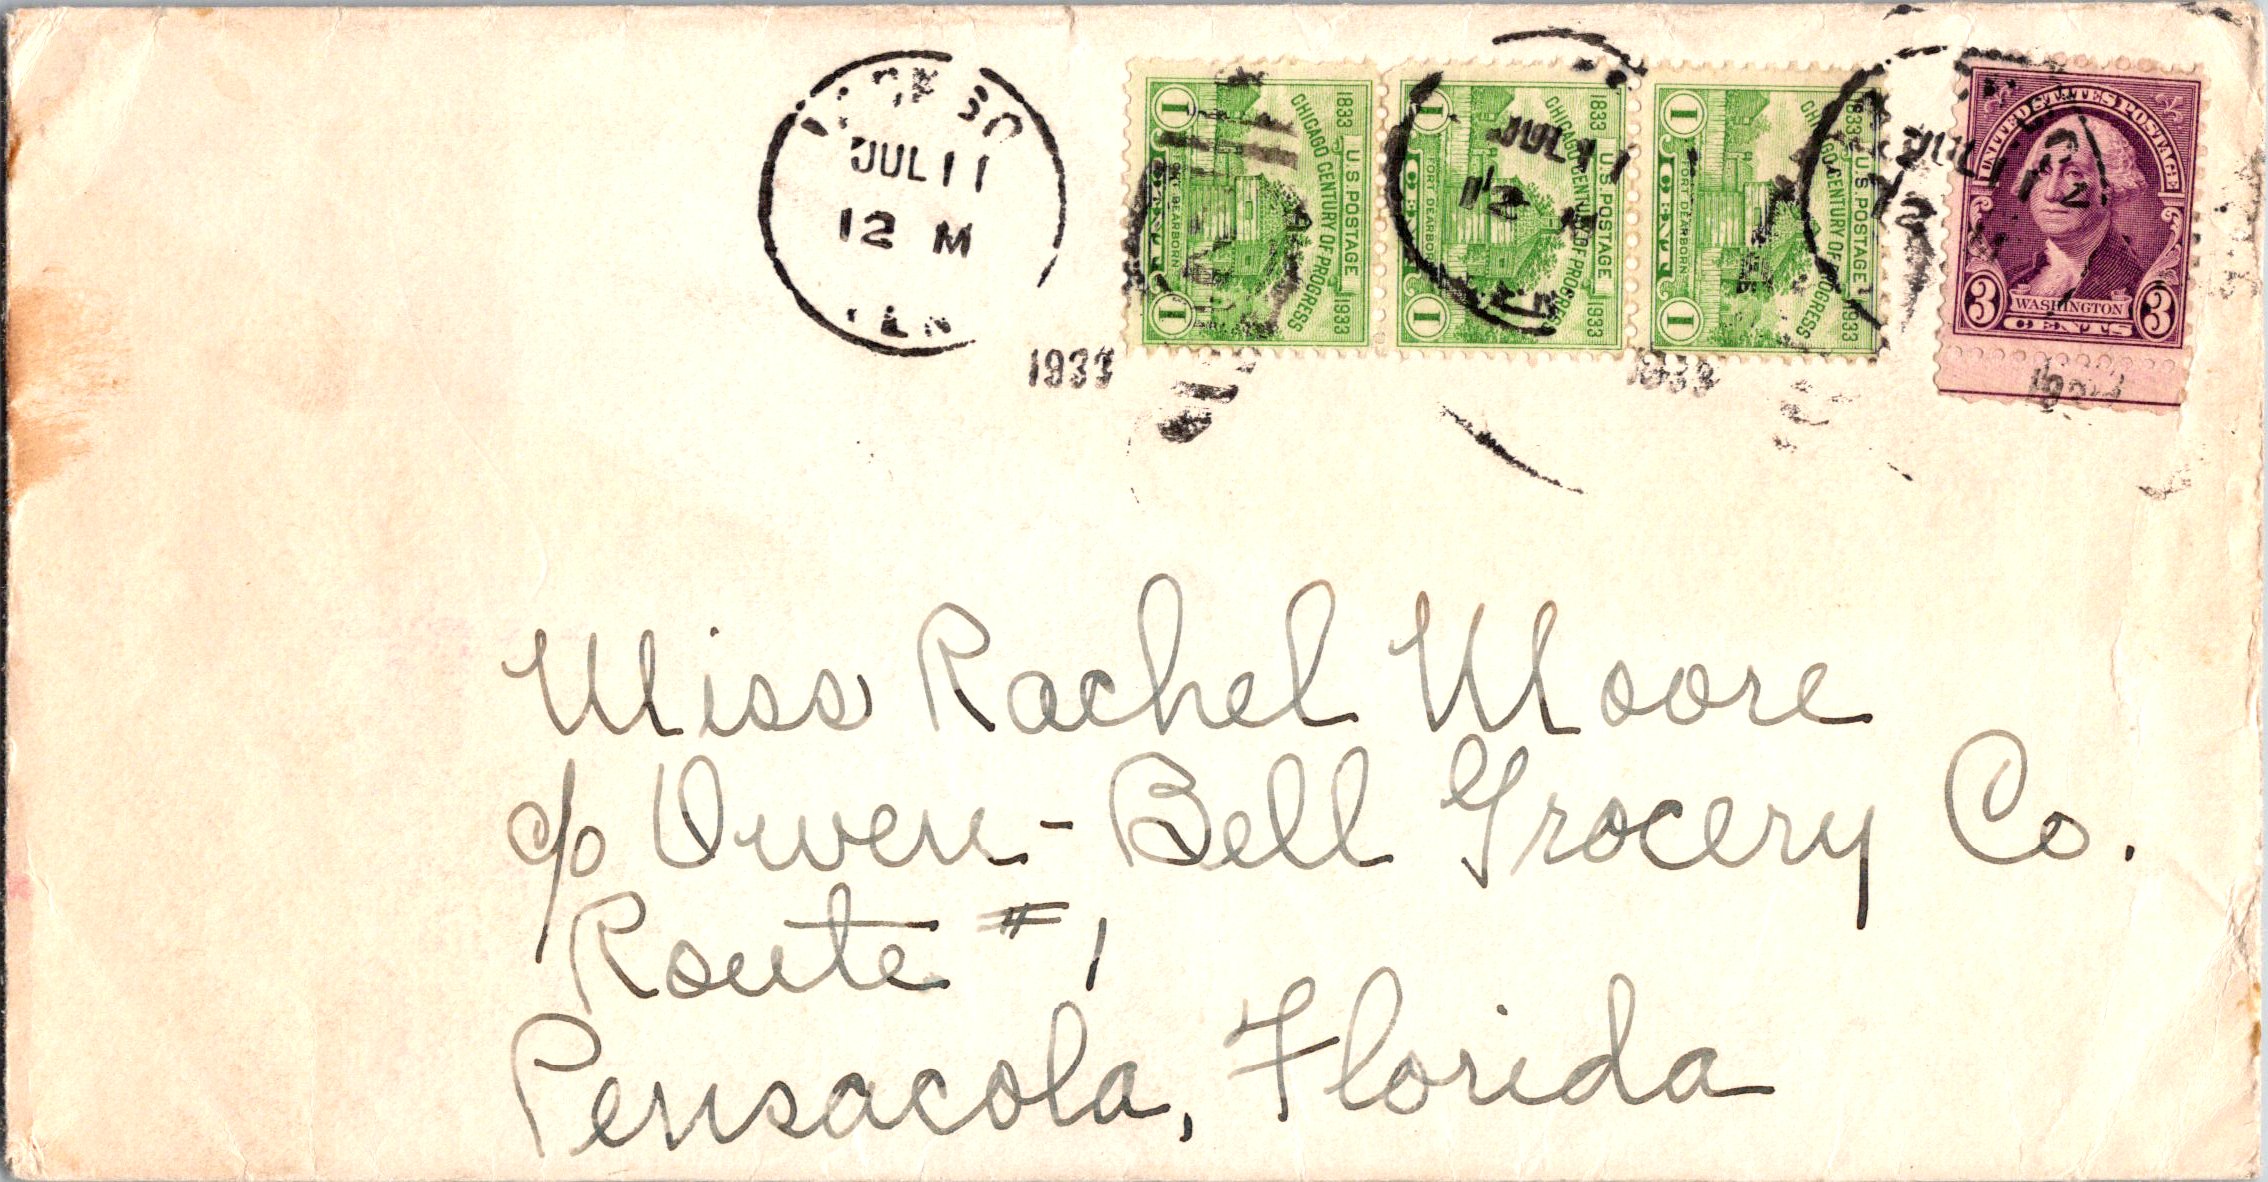 JUL 11
12 M
1933
1 1833 CHICAGO CENTURY OF PROGRESS U.S. POSTAGE 1933 1
1 FORT DEARBORN 1833 CHICAGO CENTURY OF PROGRESS U.S. POSTAGE 1933 1
JUL 11
12 M
1 FORT DEARBORN 1833 CHICAGO CENTURY OF PROGRESS U.S. POSTAGE 1933 1
1933
UNITED STATES POSTAGE
JUL 11
12
3 WASHINGTON 3
CENTS
Miss Rachel Moore
c/o Owen-Bell Grocery Co.
Route #1
Pensacola, Florida